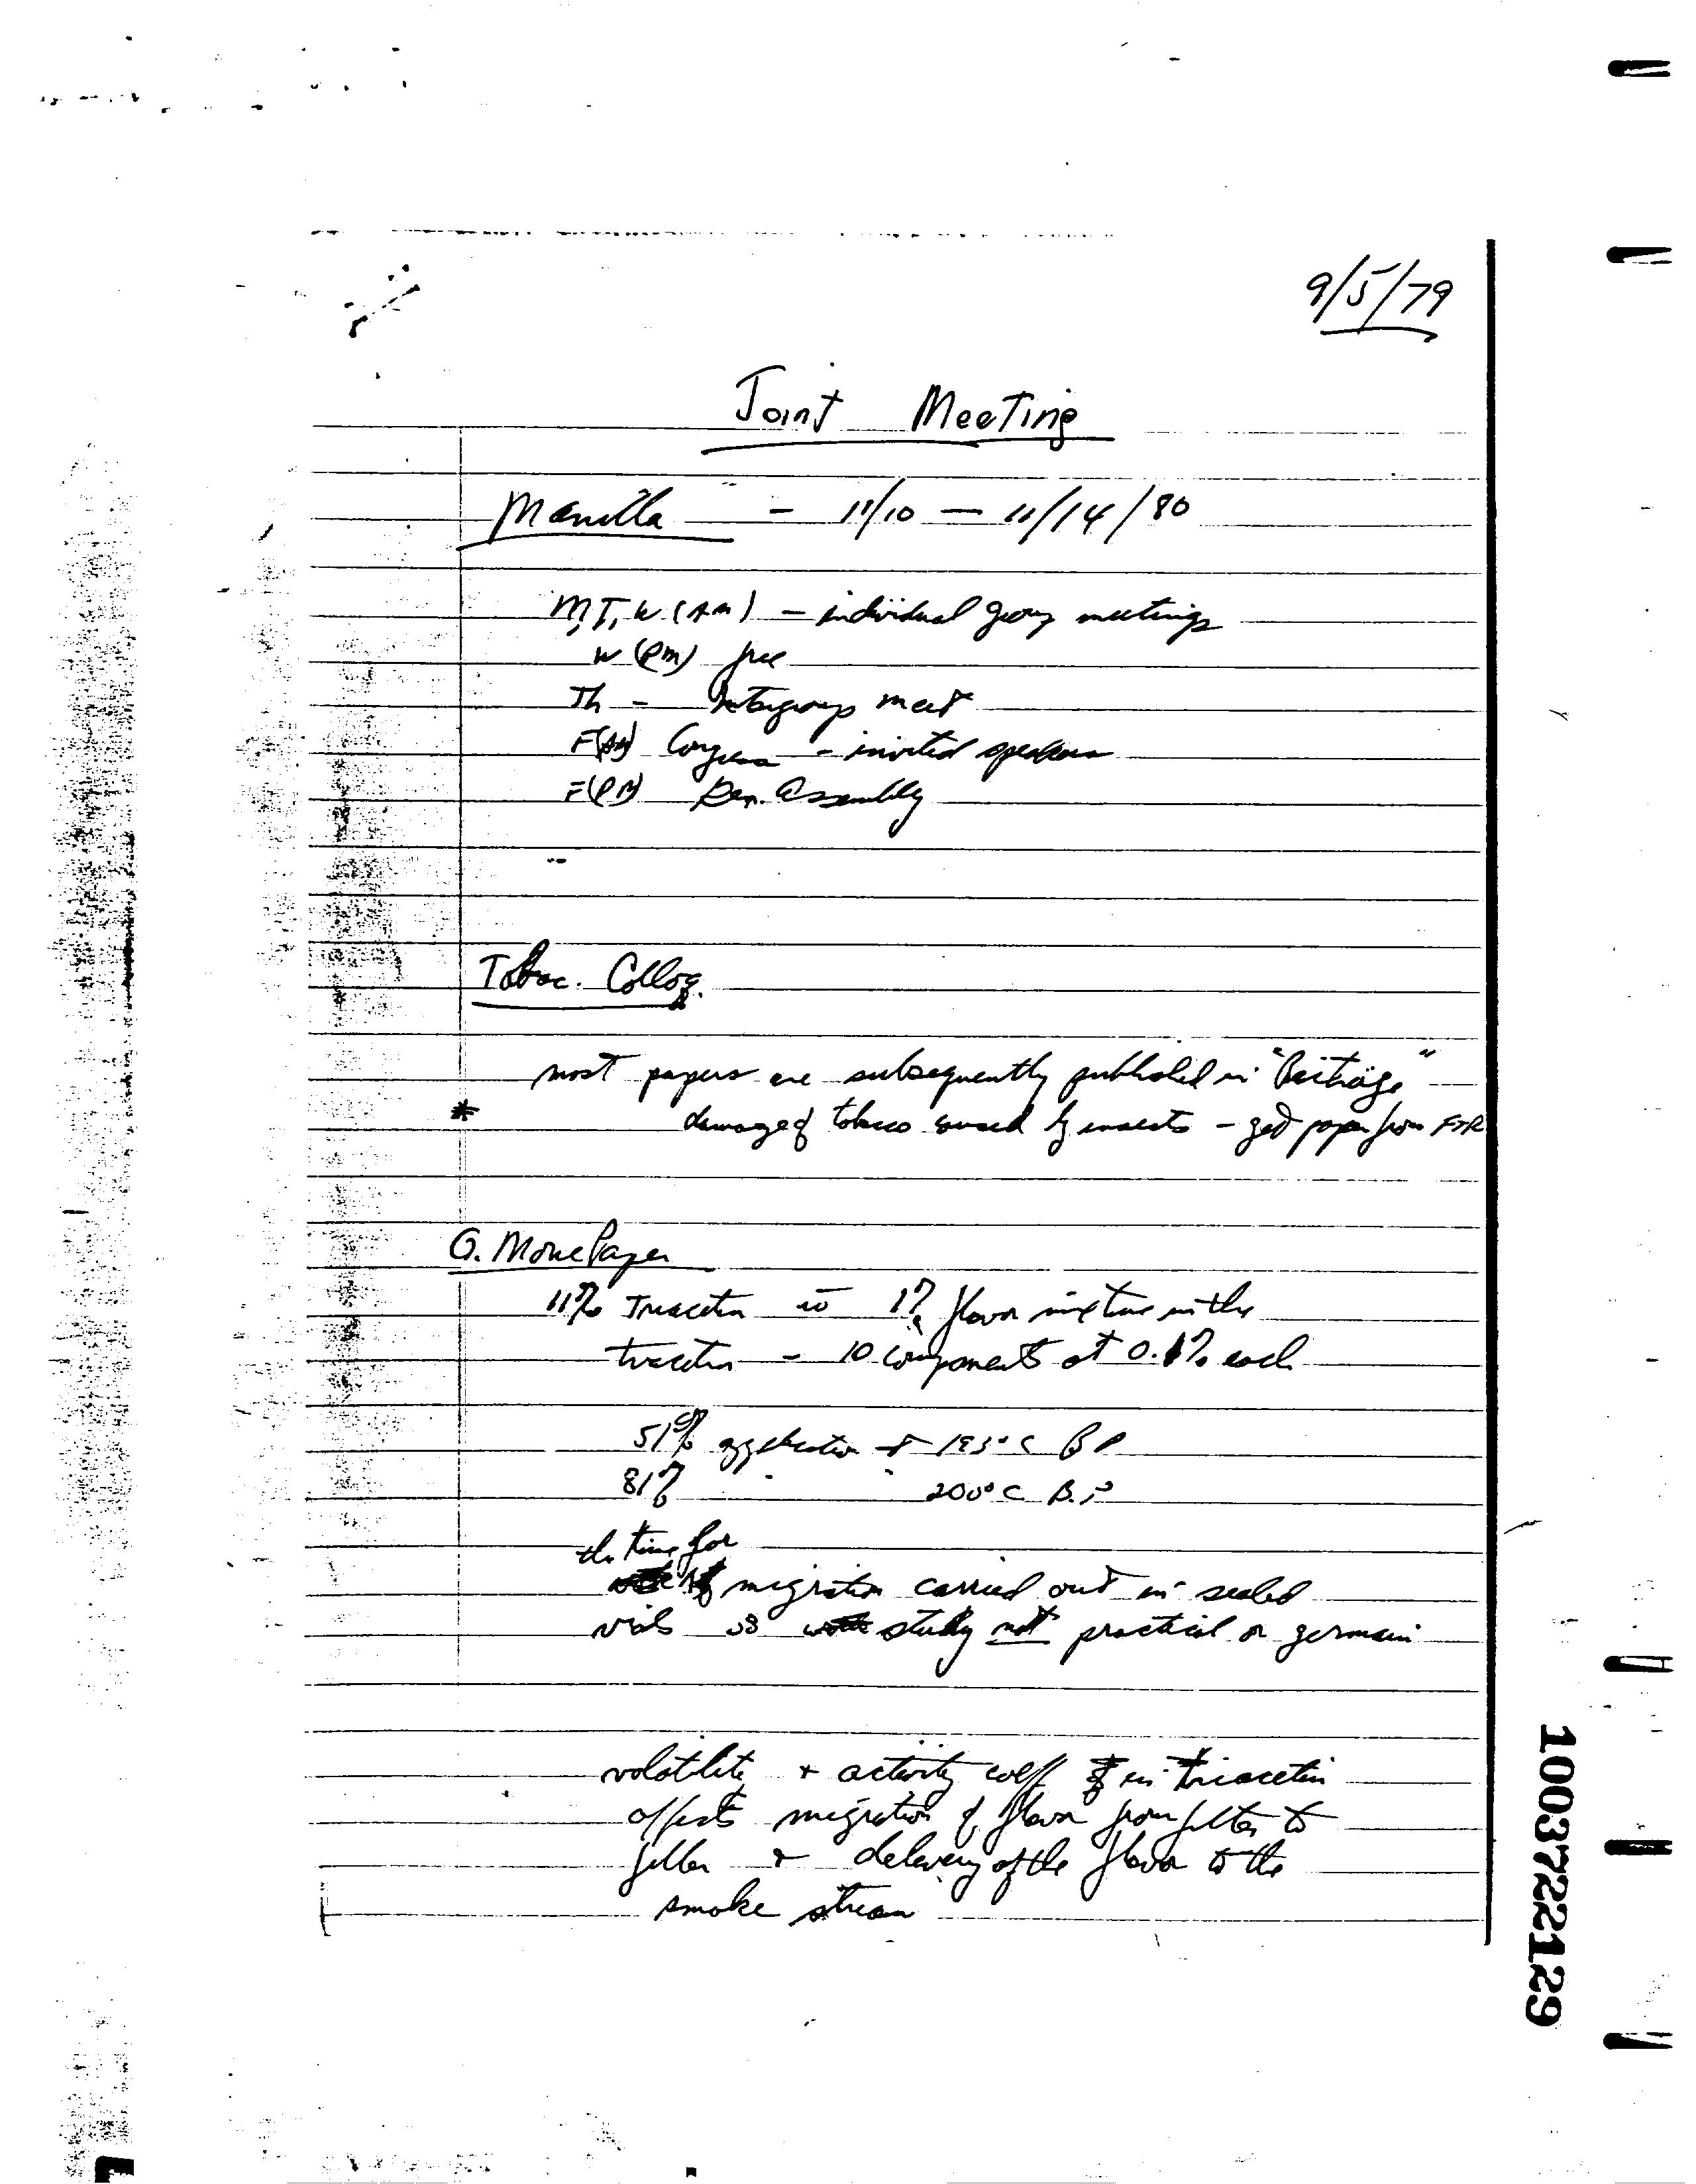 9/5/79
Joint Meeting
Manilla - 11/10 - 11/14/80
M, T, W (AM) - individual group meetings
W (PM) free
Th - Intergroup meet
F(AM) Congress - invited speakers
F(PM) Gen. Assembly
Tobac. Colloq.
most papers are subsequently published in "Beiträge"
* damage of tobacco caused by insects - get paper from FTR
G. Mone Paper
11% Triacetin 1% flavor mixture in the
triacetin - 10 components at 0.1% each
51% application 193°C BP
81% " " 200°C B.P
the time for
migration carried out in sealed
vials study not practical or germain
volatility + activity coeff in Triacetin
affects migration of flavor from filter to
filler + delivery of the flavor to the
smoke stream
1003722129